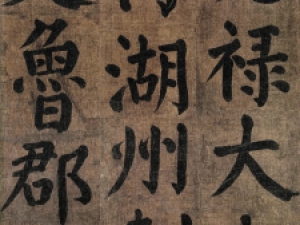 禄大
湖州
魯郡